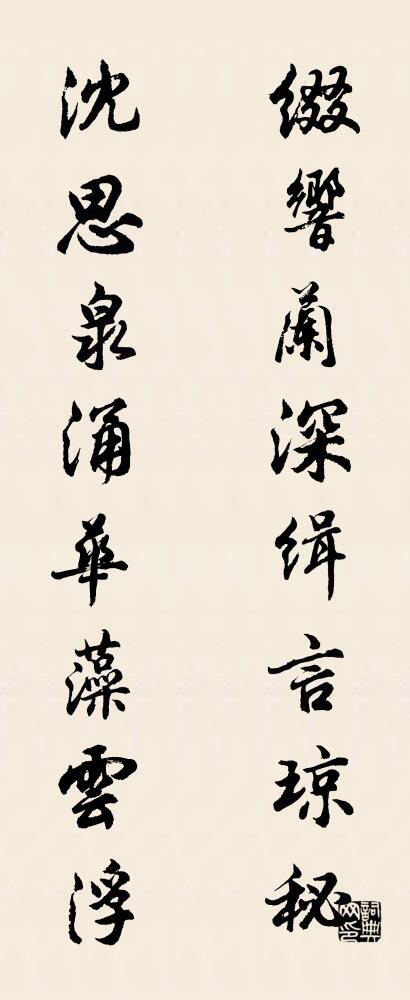 綴響蘭深緝言琼秘
沈思泉涌華藻雲浮
詞典網印